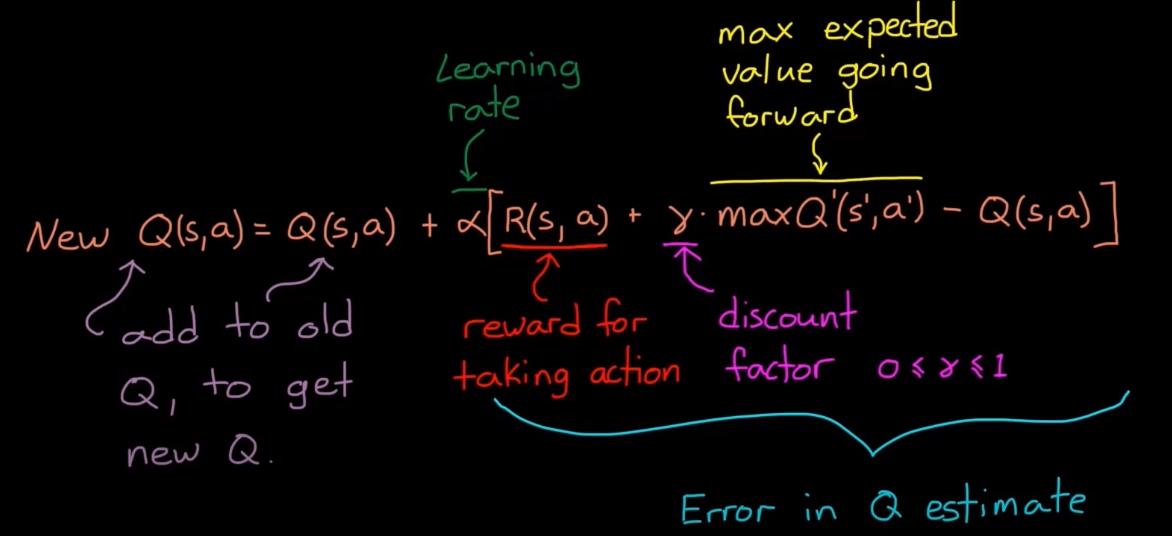 Learning
rate
max expected
value going
forward
New Q(s,a) = Q(s,a) + α[R(s, a) + γ·maxQ'(s',a') − Q(s,a)]
add to old
Q, to get
new Q.
reward for
taking action
discount
factor 0 ≤ γ ≤ 1
Error in Q estimate